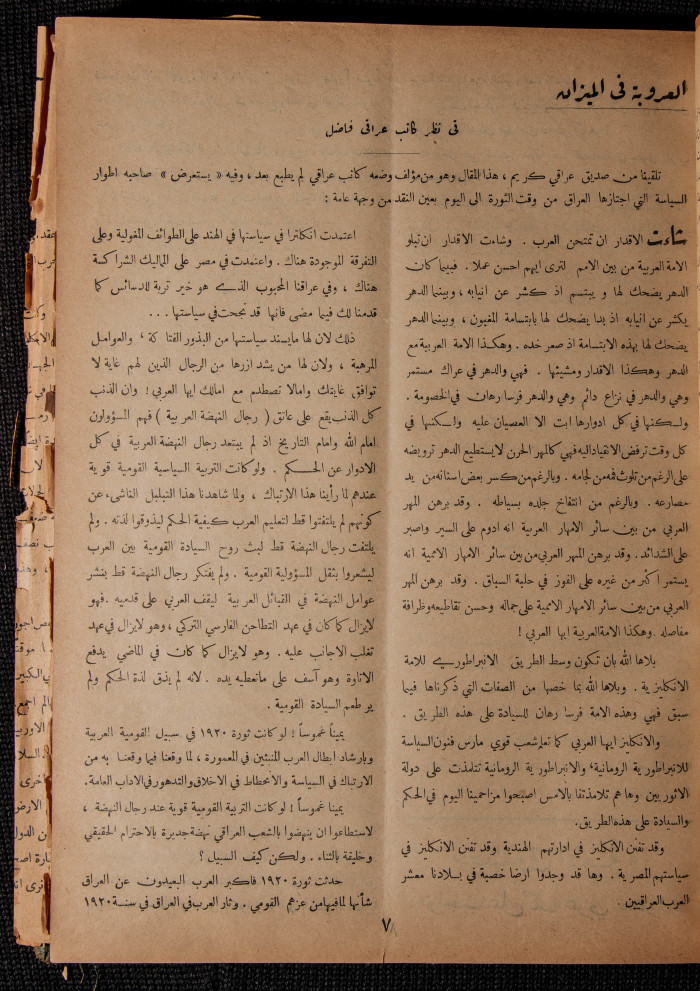 العروبة فى الميزان
فى نظر كاتب عراقى فاضل
تلقينا من صديق عراقي كريم ، هذا المقال وهو من مؤلف وضعه كاتب عراقي لم يطبع بعد ، وفيه « يستعرض » صاحبه اطوار
السياسة التي اجتازها العراق من وقت الثورة الى اليوم بعين النقد من وجهة عامة :
شاءت الاقدار ان تمتحن العرب . وشاءت الاقدار ان تبلو
الامة العربية من بين الامم لترى ايهم احسن عملا . فبينما كان
الدهر يضحك لها و يبتسم اذ كشر عن انيابه ، وبينما الدهر
يكشر عن انيابه اذ بدا يضحك لها بابتسامة المغبون ، وبينما الدهر
يضحك لها بهذه الابتسامة اذ صعر خده . وهكذا الامة العربية مع
الدهر وهكذا الاقدار ومشيئتها . فهي والدهر في عراك مستمر
وهي والدهر في نزاع دائم وهي والدهر فرسا رهان في الخصومة .
ولكنها في كل ادوارها ابت الا العصيان عليه ولكنها في
كل وقت ترفض الانقياد اليه فهي كالمهر الحرن لا يستطيع الدهر ترويضه
على الرغم من تلوث فمه من لجامه . وبالرغم من كسر بعض اسنانه من يد
مصارعه . وبالرغم من انتفاخ جلده بسياطه . وقد برهن المهر
العربي من بين سائر الامهار العربية انه ادوم على السير واصبر
على الشدائد . وقد برهن المهر العربي من بين سائر الامهار الاممية انه
يستمر اكثر من غيره على الفوز في حلبة السباق . وقد برهن المهر
العربي من بين سائر الامهار الاممية على جماله وحسن تقاطيعه وظرافة
مفاصله . وهكذا الامة العربية ايها العربي !
بلاها الله بان تكون وسط الطريق الانبراطوري للامة
الانكليزية . وبلاها الله بما خصها من الصفات التي ذكرناها فيما
سبق فهي وهذه الامة فرسا رهان للسيادة على هذه الطريق .
والانكليز ايها العربي كما تعلم شعب قوي مارس فنون السياسة
للانبراطورية الرومانية ، والانبراطورية الرومانية تتلمذت على دولة
الاثوربين وهاهم تلامذتنا بالامس اصبحوا مزاحمينا اليوم في الحكم
والسيادة على هذه الطريق .
وقد تفنن الانكليز في ادارتهم الهندية وقد تفنن الانكليز في
سياستهم المصرية . وها قد وجدوا ارضا خصبة في بلادنا معشر
العرب العراقيين .
اعتمدت انكلترا في سياستها في الهند على الطوائف المغولية وعلى
التفرقة الموجودة هناك . واعتمدت في مصر على المماليك الشراكسة
هناك ، وفي عراقنا المحبوب الذي هو خير تربة للدسائس كما
قدمنا لك فيما مضى فانها قد نجحت في سياستها ...
ذلك لان لها مايسند سياستها من البذور الفتاكة ، والعوامل
المرهبة ، ولان لها من يشد ازرها من الرجال الذين لهم غاية لا
توافق غايتك وامالا تصطدم مع امالك ايها العربي ! وان الذنب
كل الذنب يقع على عاتق ( رجال النهضة العربية ) فهم المسؤولون
امام الله وامام التاريخ اذ لم يبتعد رجال النهضة العربية في كل
الادوار عن الحكم . ولو كانت التربية السياسية القومية قوية
عندهم لما رأينا هذا الارتباك ، ولما شاهدنا هذا التبلبل الناشيء عن
كونهم لم يلتفتوا قط لتعليم العرب كيفية الحكم ليذوقوا لذته . ولم
يلتفت رجال النهضة قط لبث روح السيادة القومية بين العرب
ليشعروا بثقل المسؤولية القومية . ولم يفتكر رجال النهضة قط بنشر
عوامل النهضة في القبائل العربية ليقف العربي على قدميه . فهو
لايزال كما كان في عهد التطاحن الفارسي التركي ، وهو لايزال في عهد
تغلب الاجانب عليه . وهو لايزال كما كان في الماضي يدفع
الاتاوة وهو آسف على ماتعطيه يده . لانه لم يذق لذة الحكم ولم
ير طعم السيادة القومية .
يميناً غموساً ! لو كانت ثورة ١٩٢٠ في سبيل القومية العربية
وبارشاد ابطال العرب المنبثين في المعمورة ، لما وقعنا فيما وقعنا به من
الارتباك في السياسة والانحطاط في الاخلاق والتدهور في الاداب العامة .
يمينا غموساً ! لو كانت التربية القومية قوية عند رجال النهضة ،
لاستطاعوا ان ينهضوا بالشعب العراقي نهضة جديرة بالاحترام الحقيقي
وخليقة بالثناء . ولكن كيف السبيل ؟
حدثت ثورة ١٩٢٠ فاكبر العرب البعيدون عن العراق
شأنها لما فيها من عزهم القومي . وثار العرب في العراق في سنة ١٩٢٠
٧